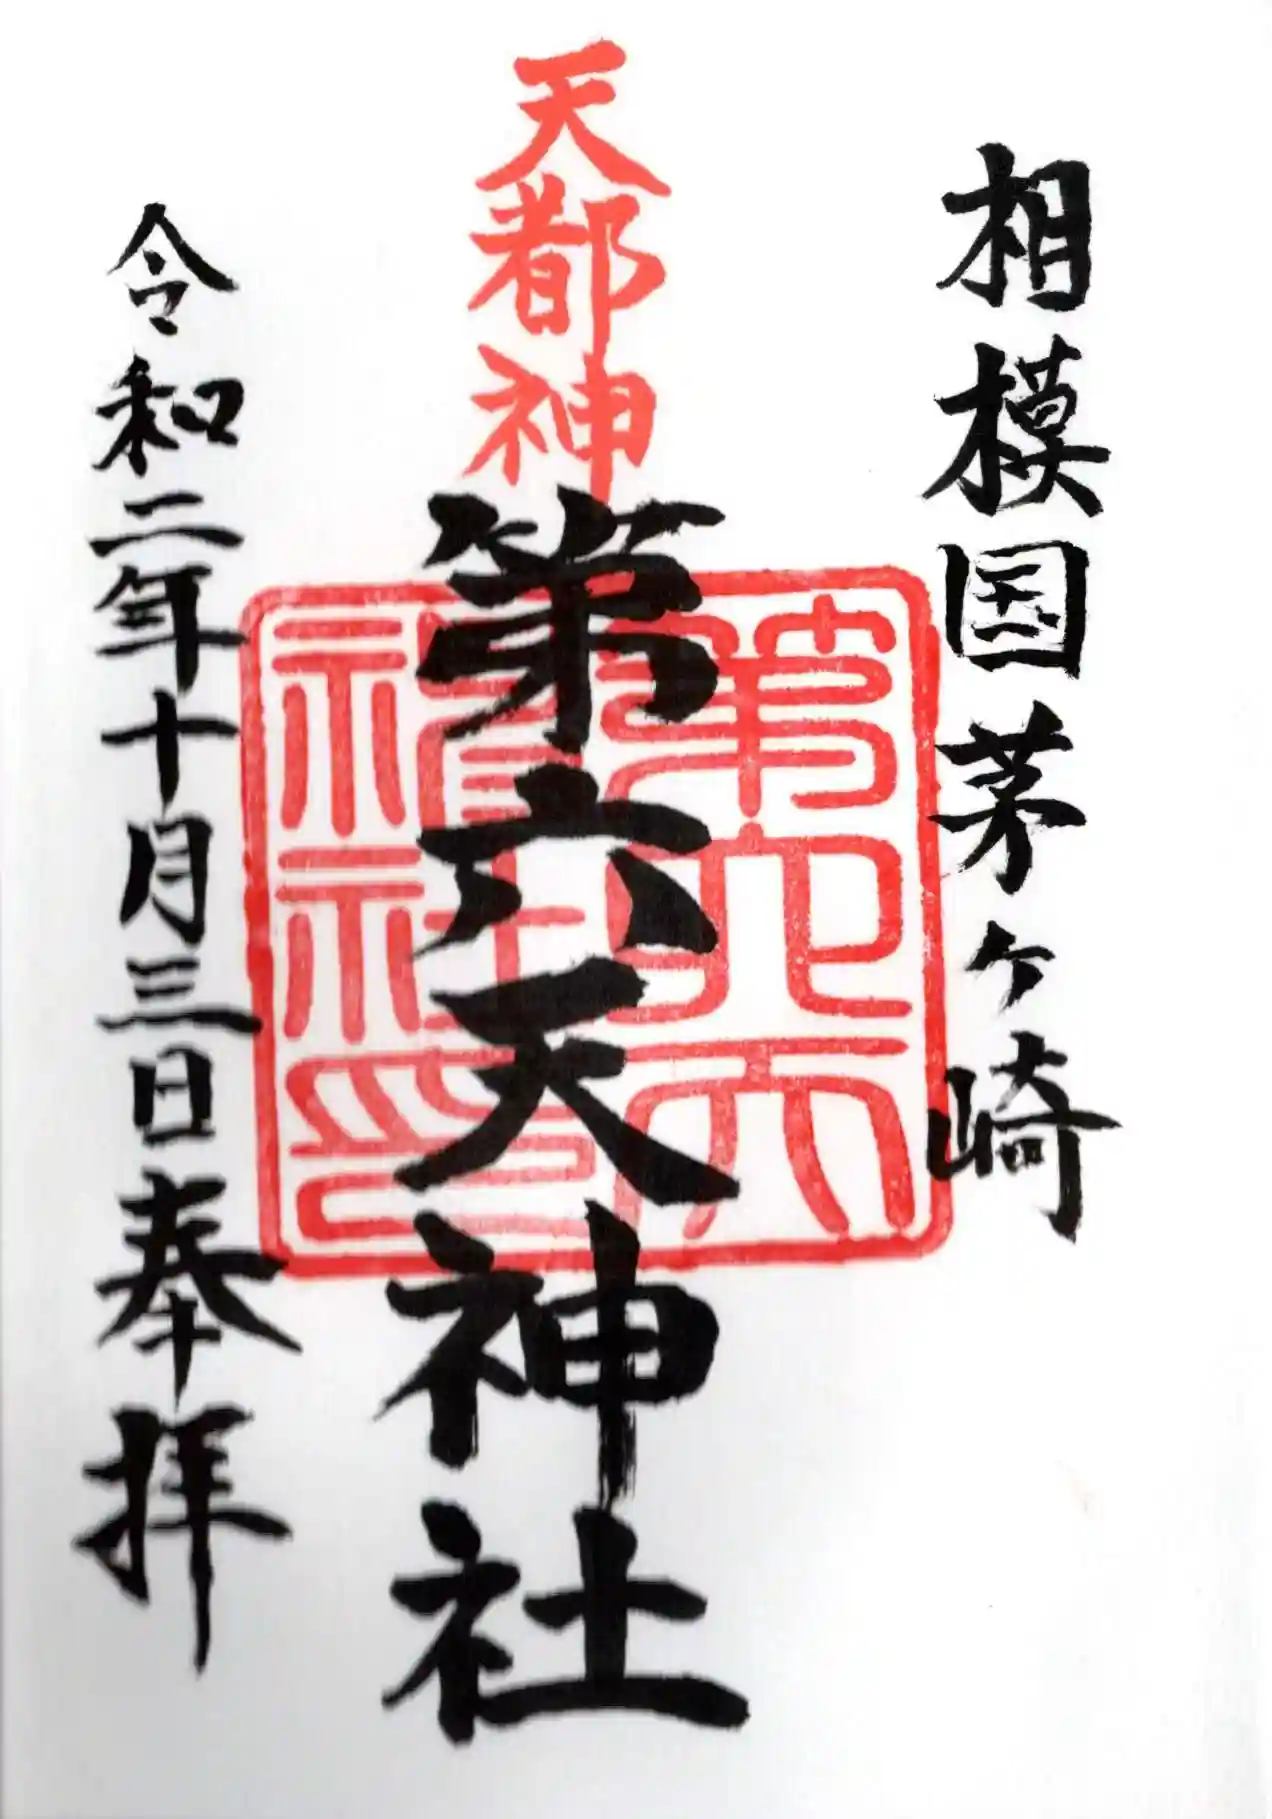 相模国茅ヶ崎
天都神
第六天神社
第六天神社印
令和二年十月三日奉拝